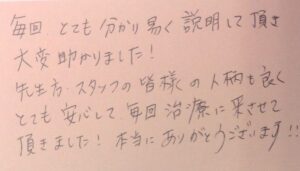 毎回 とても 分かり易く 説明して 頂き
大変 助かりました！
先生方・スタッフの 皆様の 人柄も 良く
とても 安心して 毎回 治療に 来させて
頂きました！ 本当に ありがとうございます!!